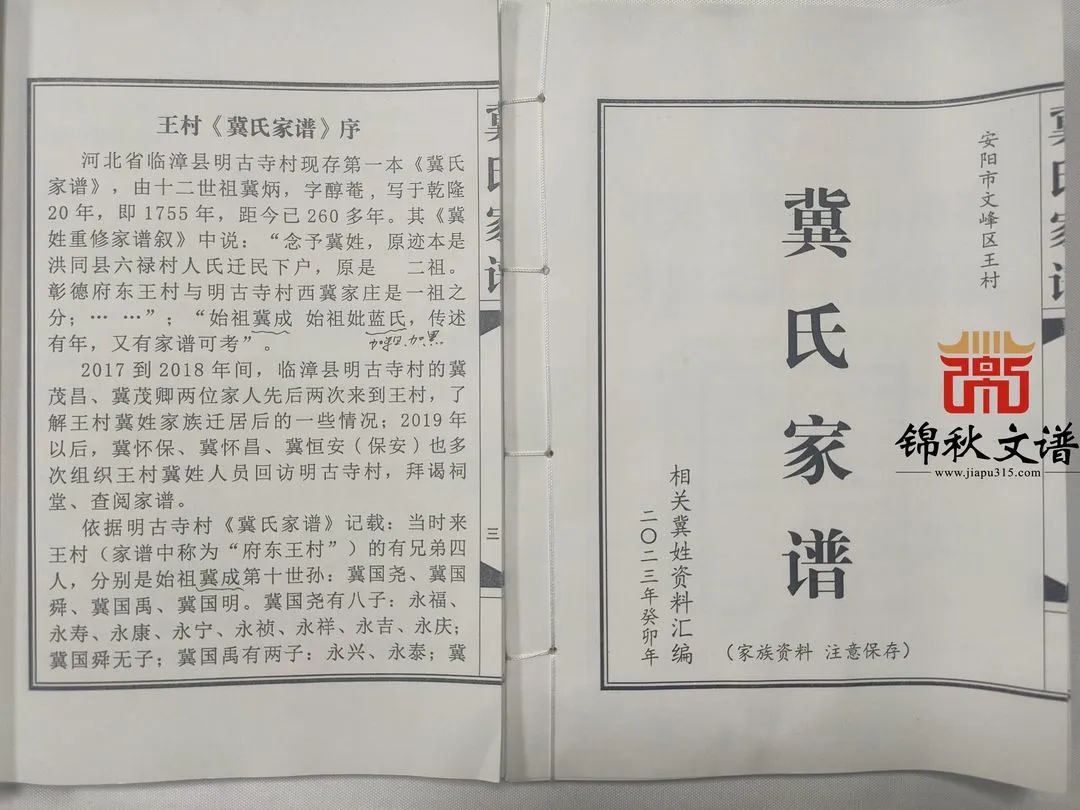 王村《冀氏家谱》序
河北省临漳县明古寺村现存第一本《冀氏
家谱》，由十二世祖冀炳，字醇菴，写于乾隆
20年，即1755年，距今已260多年。其《冀
姓重修家谱叙》中说：“念予冀姓，原迹本是
洪同县六禄村人氏迁民下户，原是　二祖。
彰德府东王村与明古寺村西冀家庄是一祖之
分；……”；“始祖冀成 始祖妣蓝氏，传述
有年，又有家谱可考”。
加粗.加黑
2017到2018年间，临漳县明古寺村的冀
茂昌、冀茂卿两位家人先后两次来到王村，了
解王村冀姓家族迁居后的一些情况；2019年
以后，冀怀保、冀怀昌、冀恒安（保安）也多
次组织王村冀姓人员回访明古寺村，拜谒祠
堂、查阅家谱。
依据明古寺村《冀氏家谱》记载：当时来
王村（家谱中称为“府东王村”）的有兄弟四
人，分别是始祖冀成第十世孙：冀国尧、冀国
舜、冀国禹、冀国明。冀国尧有八子：永福、
永寿、永康、永宁、永祯、永祥、永吉、永庆；
冀国舜无子；冀国禹有两子：永兴、永泰；冀
冀氏家谱
三
安阳市文峰区王村
冀氏家谱
相关冀姓资料汇编
二〇二三年癸卯年
（家族资料 注意保存）
冀氏家谱
锦秋文谱
www.jiapu315.com